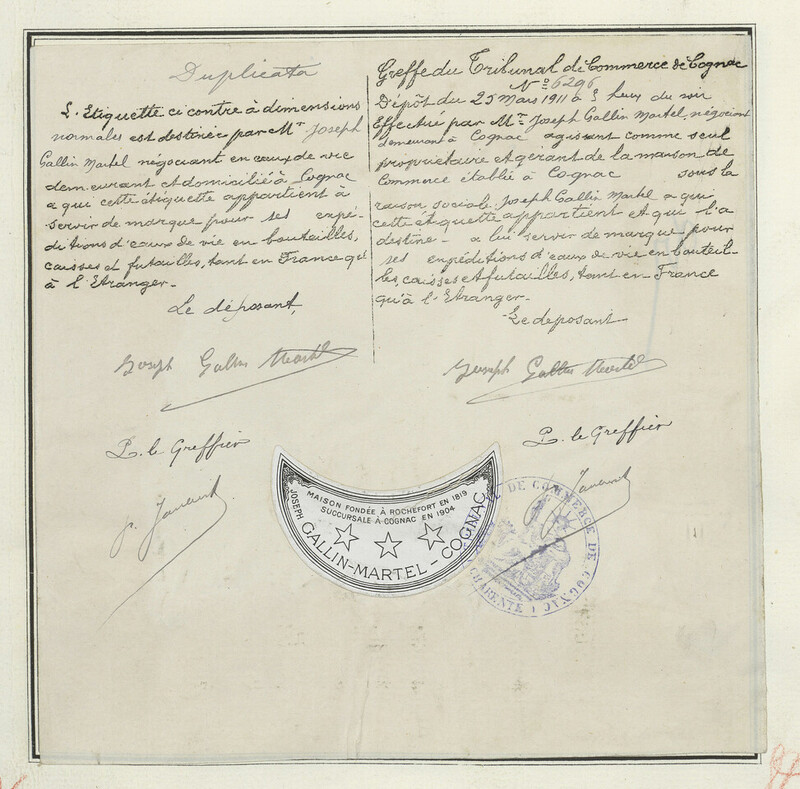 Duplicata
L'Etiquette ci contre à dimensions
normales est destinée par Mr Joseph
Gallin Martel négociant en eaux de vie
demeurant et domicilié à Cognac
a qui cette étiquette appartient à
servir de marque pour ses expé-
ditions d'eaux de vie en bouteilles,
caisses et futailles, tant en France qu'
à l'Etranger-
Le déposant,
Joseph Gallin Martel
P. le Greffier
Greffe du Tribunal de Commerce de Cognac
No 6296
Dépôt du 25 Mars 1911 à 5 heures du soir
Effectué par Mr Joseph Gallin Martel, négociant
demeurant à Cognac agissant comme seul
propriétaire et gérant de la maison de
Commerce établie à Cognac sous la
raison sociale Joseph Gallin Martel a qui
cette étiquette appartient et qui l'a
destine- a lui servir de marque pour
ses expéditions d'eaux de vie en bouteil-
les, caisses et futailles, tant en France
qu'à l'Etranger-
Le deposant
Joseph Gallin Martel
P. le Greffier
MAISON FONDÉE À ROCHEFORT EN 1819
SUCCURSALE À COGNAC EN 1904
JOSEPH GALLIN-MARTEL - COGNAC
DE COMMERCE DE COGNAC
CHARENTE